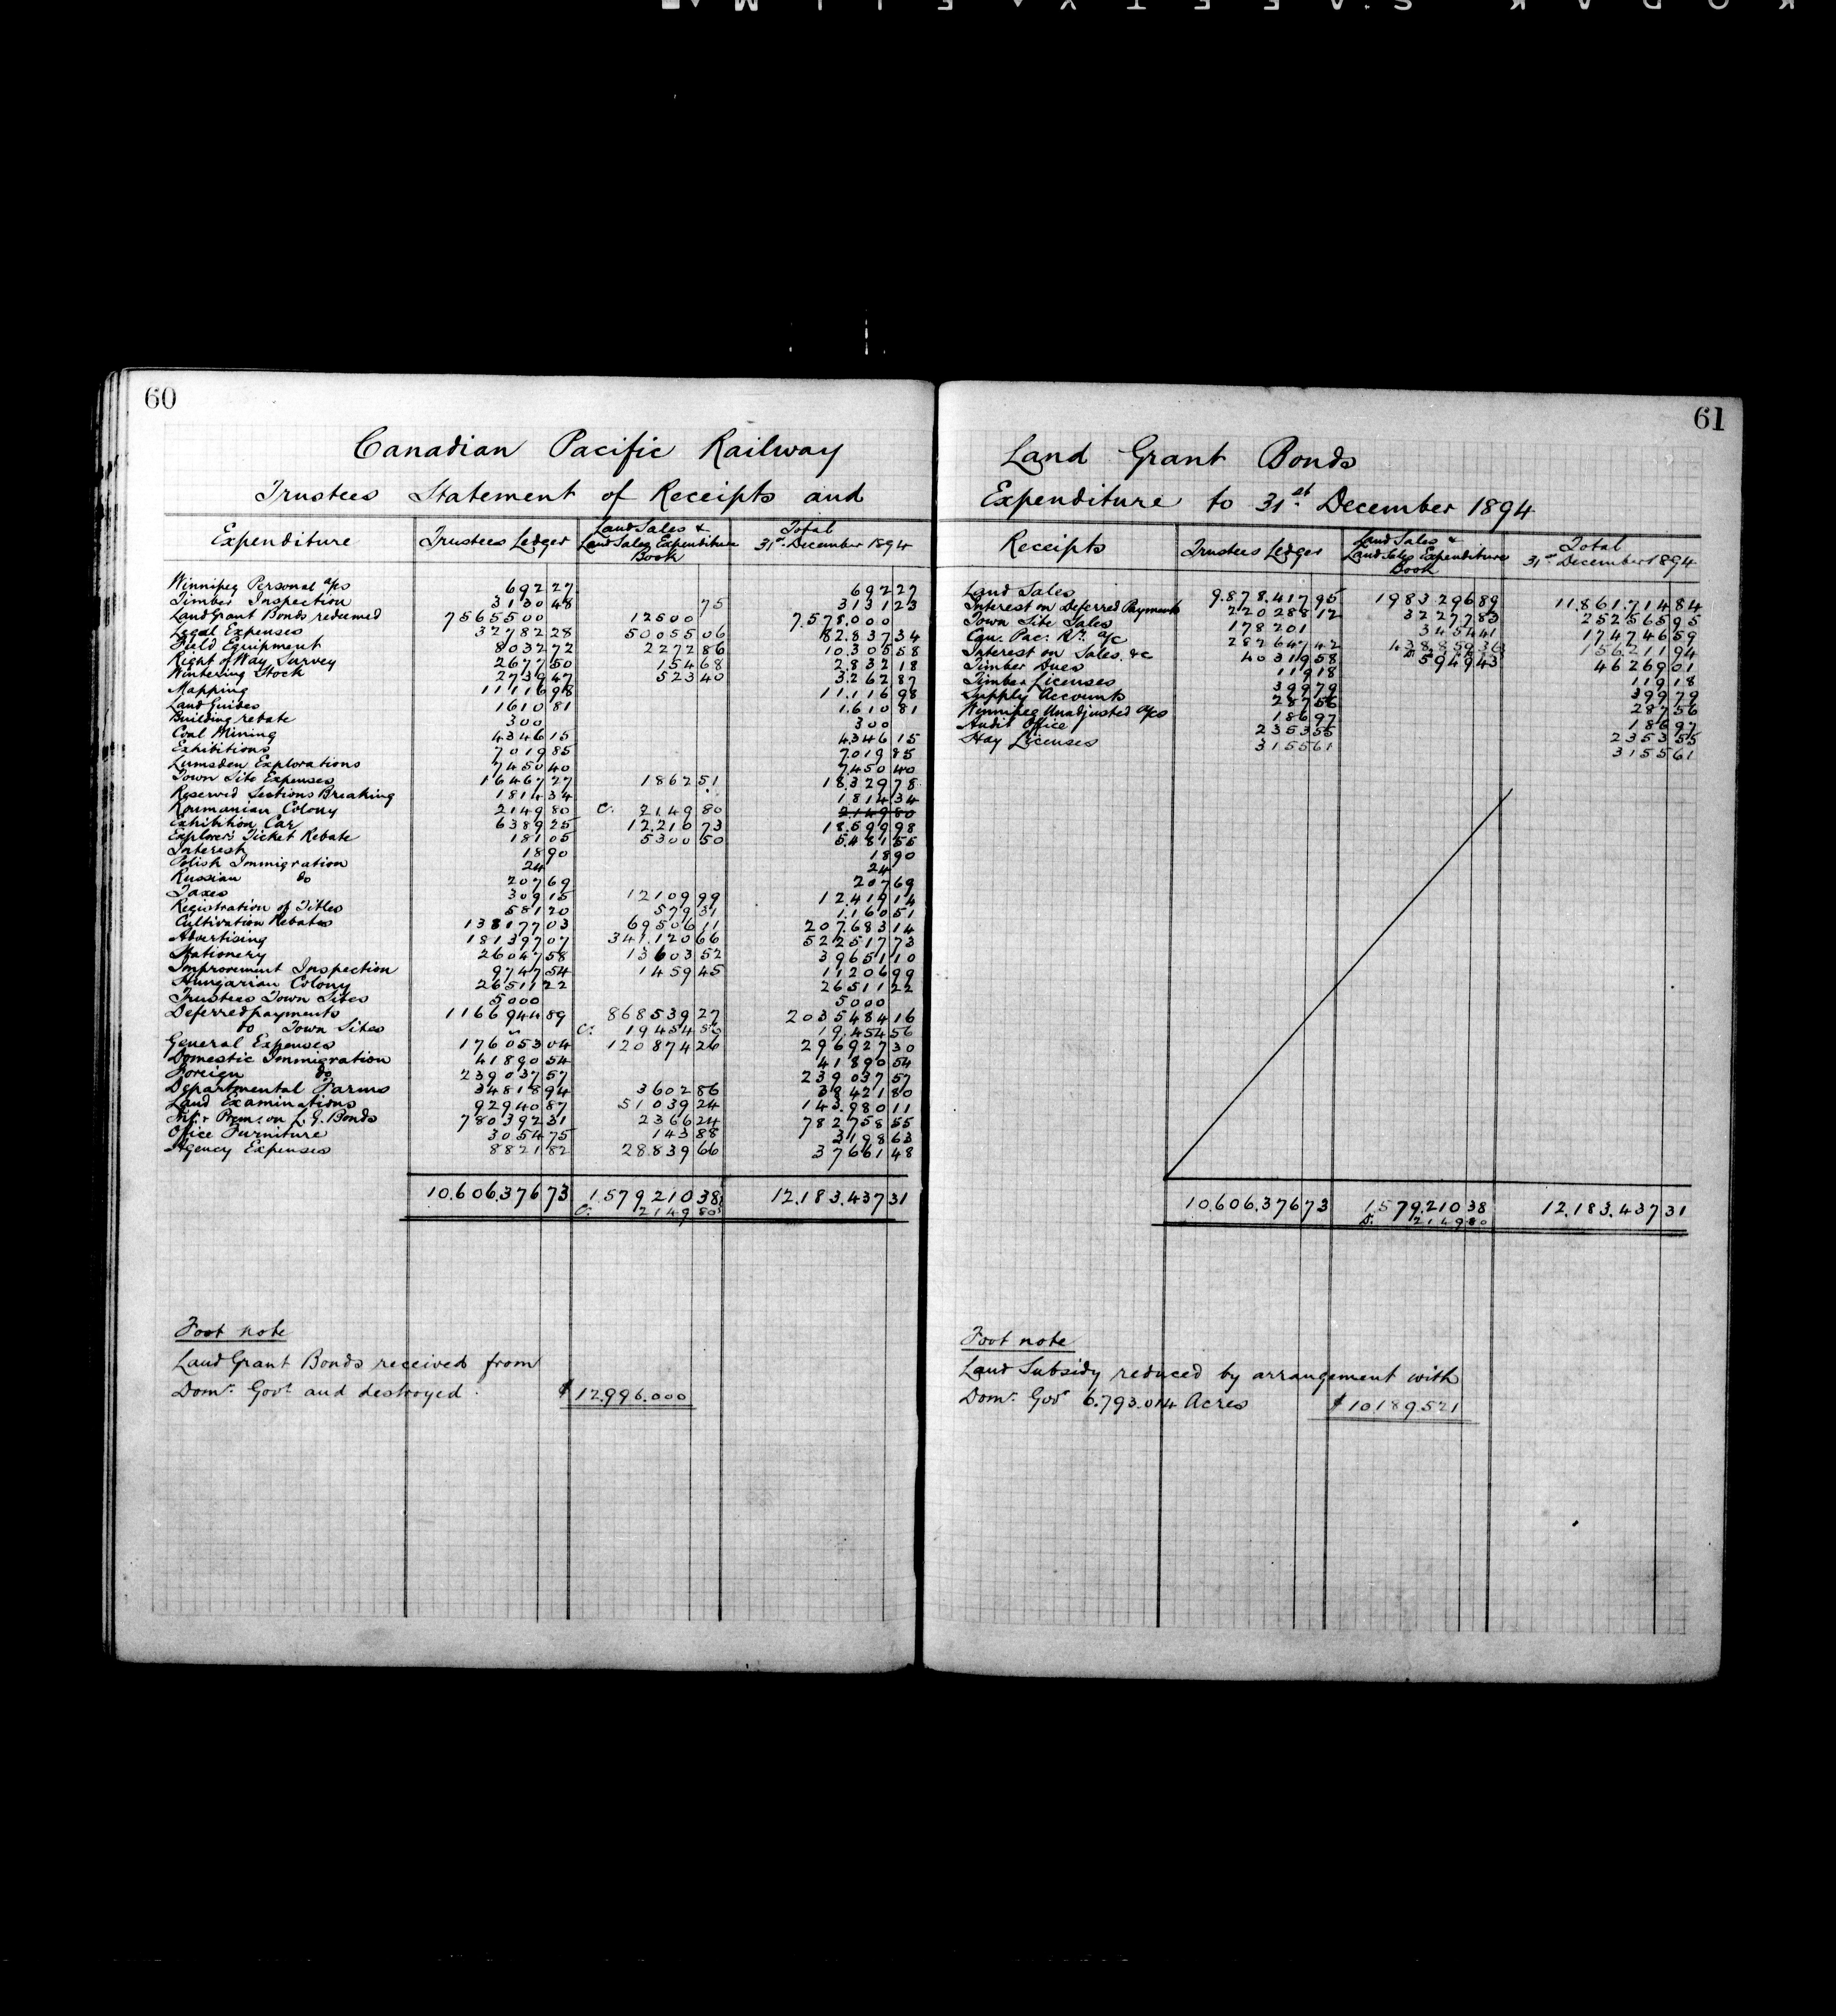 60
Canadian Pacific Railway
Trustees Statement of Receipts and
Expenditure Trustees Ledger Land Sales & Land Sales Expenditure Book Total 31st December 1894
Winnipeg Personal a/cs 692 27 692 27
Timber Inspection 3130 48 75 3131 23
Land Grant Bonds redeemed 7565500 12500 7.578.000
Legal Expenses 32782 28 50055 06 82.837 34
Field Equipment 8032 72 2272 86 10.305 58
Right of Way, Survey 2677 50 154 68 2.832 18
Wintering Stock 2739 47 523 40 3.262 87
Mapping 11116 98 11.116 98
Land Guides 1610 81 1.610 81
Building rebate 300 300
Coal Mining 4346 15 4346 15
Exhibitions 7019 85 7.019 85
Lumsden Explorations 7450 40 7.450 40
Town Site Expenses 16467 27 1862 51 18329 78
Reserved Sections Breaking 1814 34 1814 34
Roumanian Colony 2149 80 C. 2149 80 2.149 80
Exhibition Car 6389 25 12.210 73 18.599 98
Explorers Ticket Rebate 181 05 5300 50 5.481 55
Interest 18 90 18 90
Polish Immigration 24 24
Russian do 207 69 207 69
Taxes 309 15 12109 99 12.419 14
Registration of Titles 581 20 579 31 1.160 51
Cultivation Rebates 138177 03 69506 11 207.683 14
Advertising 181397 07 341.120 66 522517 73
Stationery 26047 58 13603 52 39651 10
Improvement Inspection 9747 54 1459 45 11206 99
Hungarian Colony 26511 22 26511 22
Trustees Town Sites 5000 5000
Deferred payments 1166944 89 868539 27 2035484 16
do Town Sites " C. 19454 56 19,454 56
General Expenses 176053 04 120874 26 296927 30
Domestic Immigration 41890 54 41890 54
Foreign do 239037 57 239037 57
Departmental Farms 34818 94 3602 86 38421 80
Land Examinations 92940 87 51039 24 143.980 11
Int. & Prem. on L.G. Bonds 780392 31 2366 24 782758 55
Office Furniture 3054 75 143 88 3198 63
Agency Expenses 8821 82 28839 66 37661 48
10.606.376 73 1.579210 38 12.183.437 31
C. 2149 80
Foot note
Land Grant Bonds received from
Domn. Govt. and destroyed. $12.996.000
61
Land Grant Bonds
Expenditure to 31st December 1894
Receipts Trustees Ledger Land Sales & Land Sales Expenditure Book Total 31st December 1894
Land Sales 9.878.417 95 1983296 89 11.861.714 84
Interest on Deferred Payments 220288 12 32277 83 252565 95
Town Site Sales 178201 3454 41 174746 59
Can. Pac. Ry. a/c 282647 42 438859 36 156211 94
Interest on Sales &c 40319 58 5949 43 46269 01
Timber Dues 119 18 119 18
Timber Licenses 399 79 399 79
Supply Accounts 287 56 287 56
Winnipeg Unadjusted a/cs 186 97 186 97
Audit Office 2353 55 2353 55
Hay Licenses 3155 61 3155 61
10.606.376 73 1.579.210 38 12.183.437 31
D. 2149 80
Foot note
Land Subsidy reduced by arrangement with
Domn. Govt 6.793.014 Acres $10.189.521